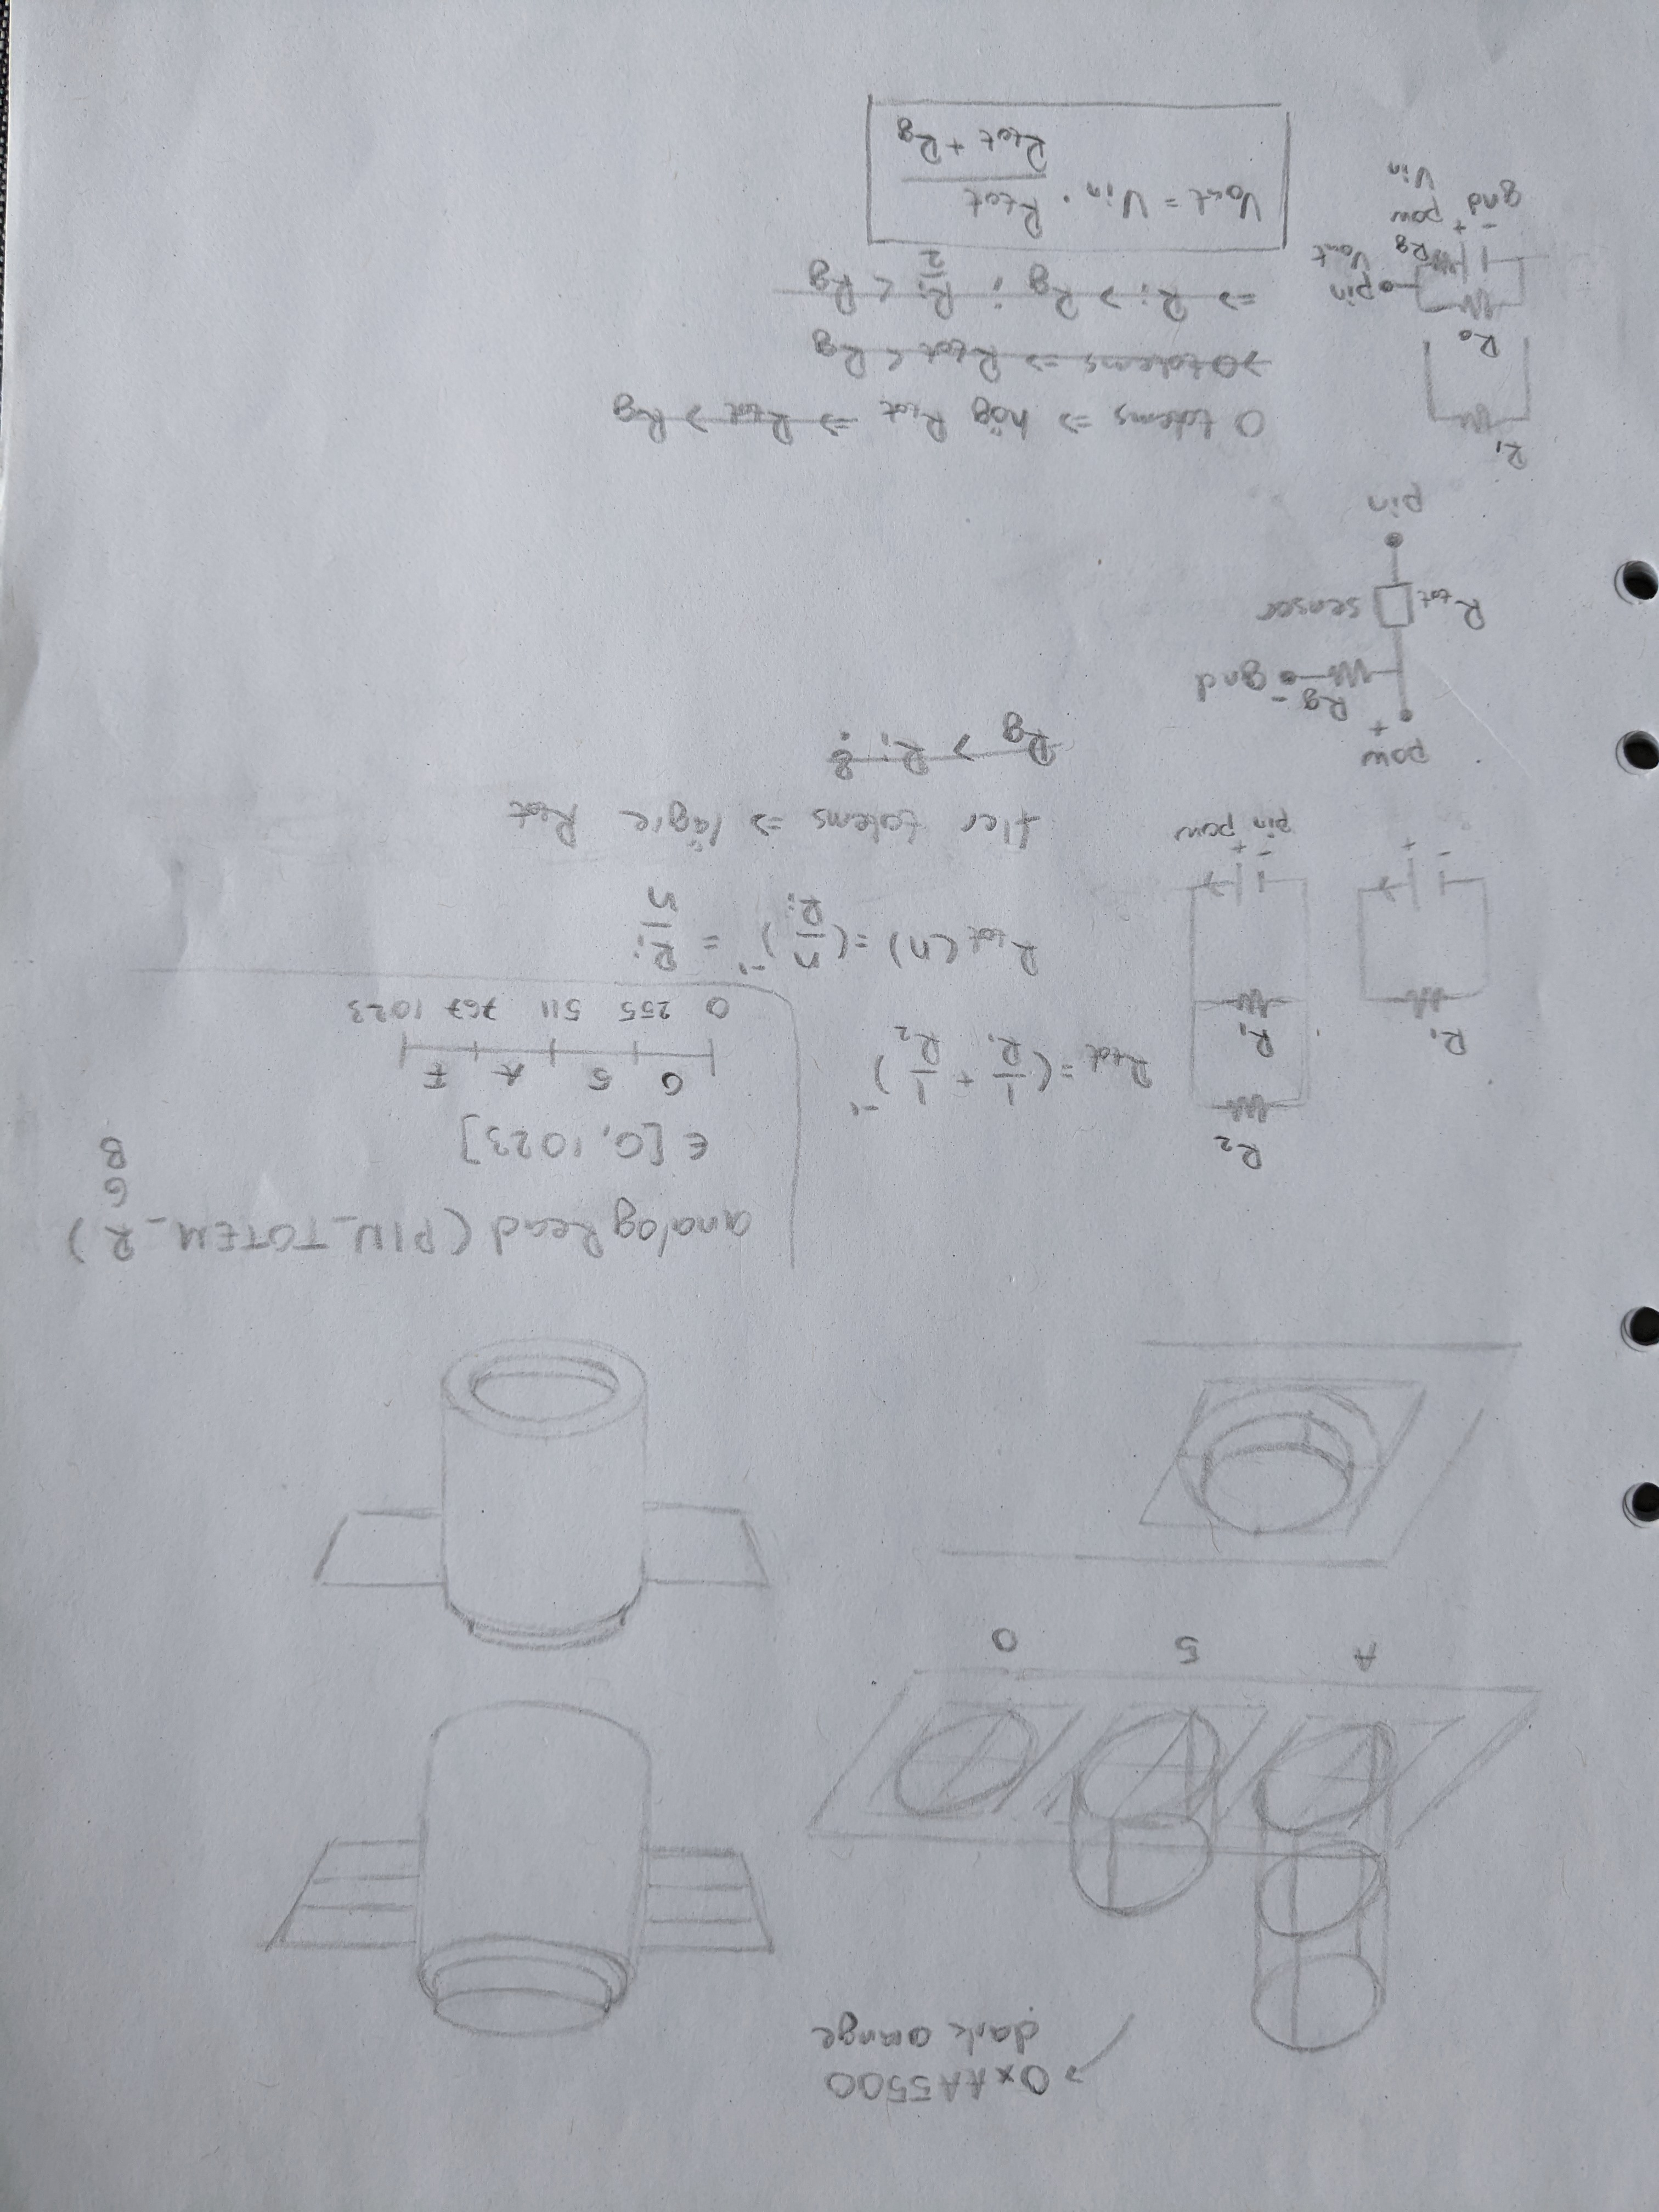 → 0xAA5500
dark orange
A 5 0
analogRead(PIN_TOTEM_R)
G
B
∈ [0, 1023]
0 5 A F
0 255 511 767 1023
R₁
- +
R₂
R₁
- +
pin pow
R_tot = (1/R₁ + 1/R₂)⁻¹
R_tot(n) = (n/Rᵢ)⁻¹ = Rᵢ/n
fler totems => lägre R_tot
Rg > Rᵢ ?
pow
+
Rg -
gnd
R_tot sensor
pin
R₁
R₀
pin
Rg Vout
- + pow
gnd
Vin
0 totems => hög R_tot => R_tot > Rg
>0 totems => R_tot < Rg
=> Rᵢ > Rg ; Rᵢ/2 < Rg
Vout = Vin · R_tot/(R_tot + Rg)